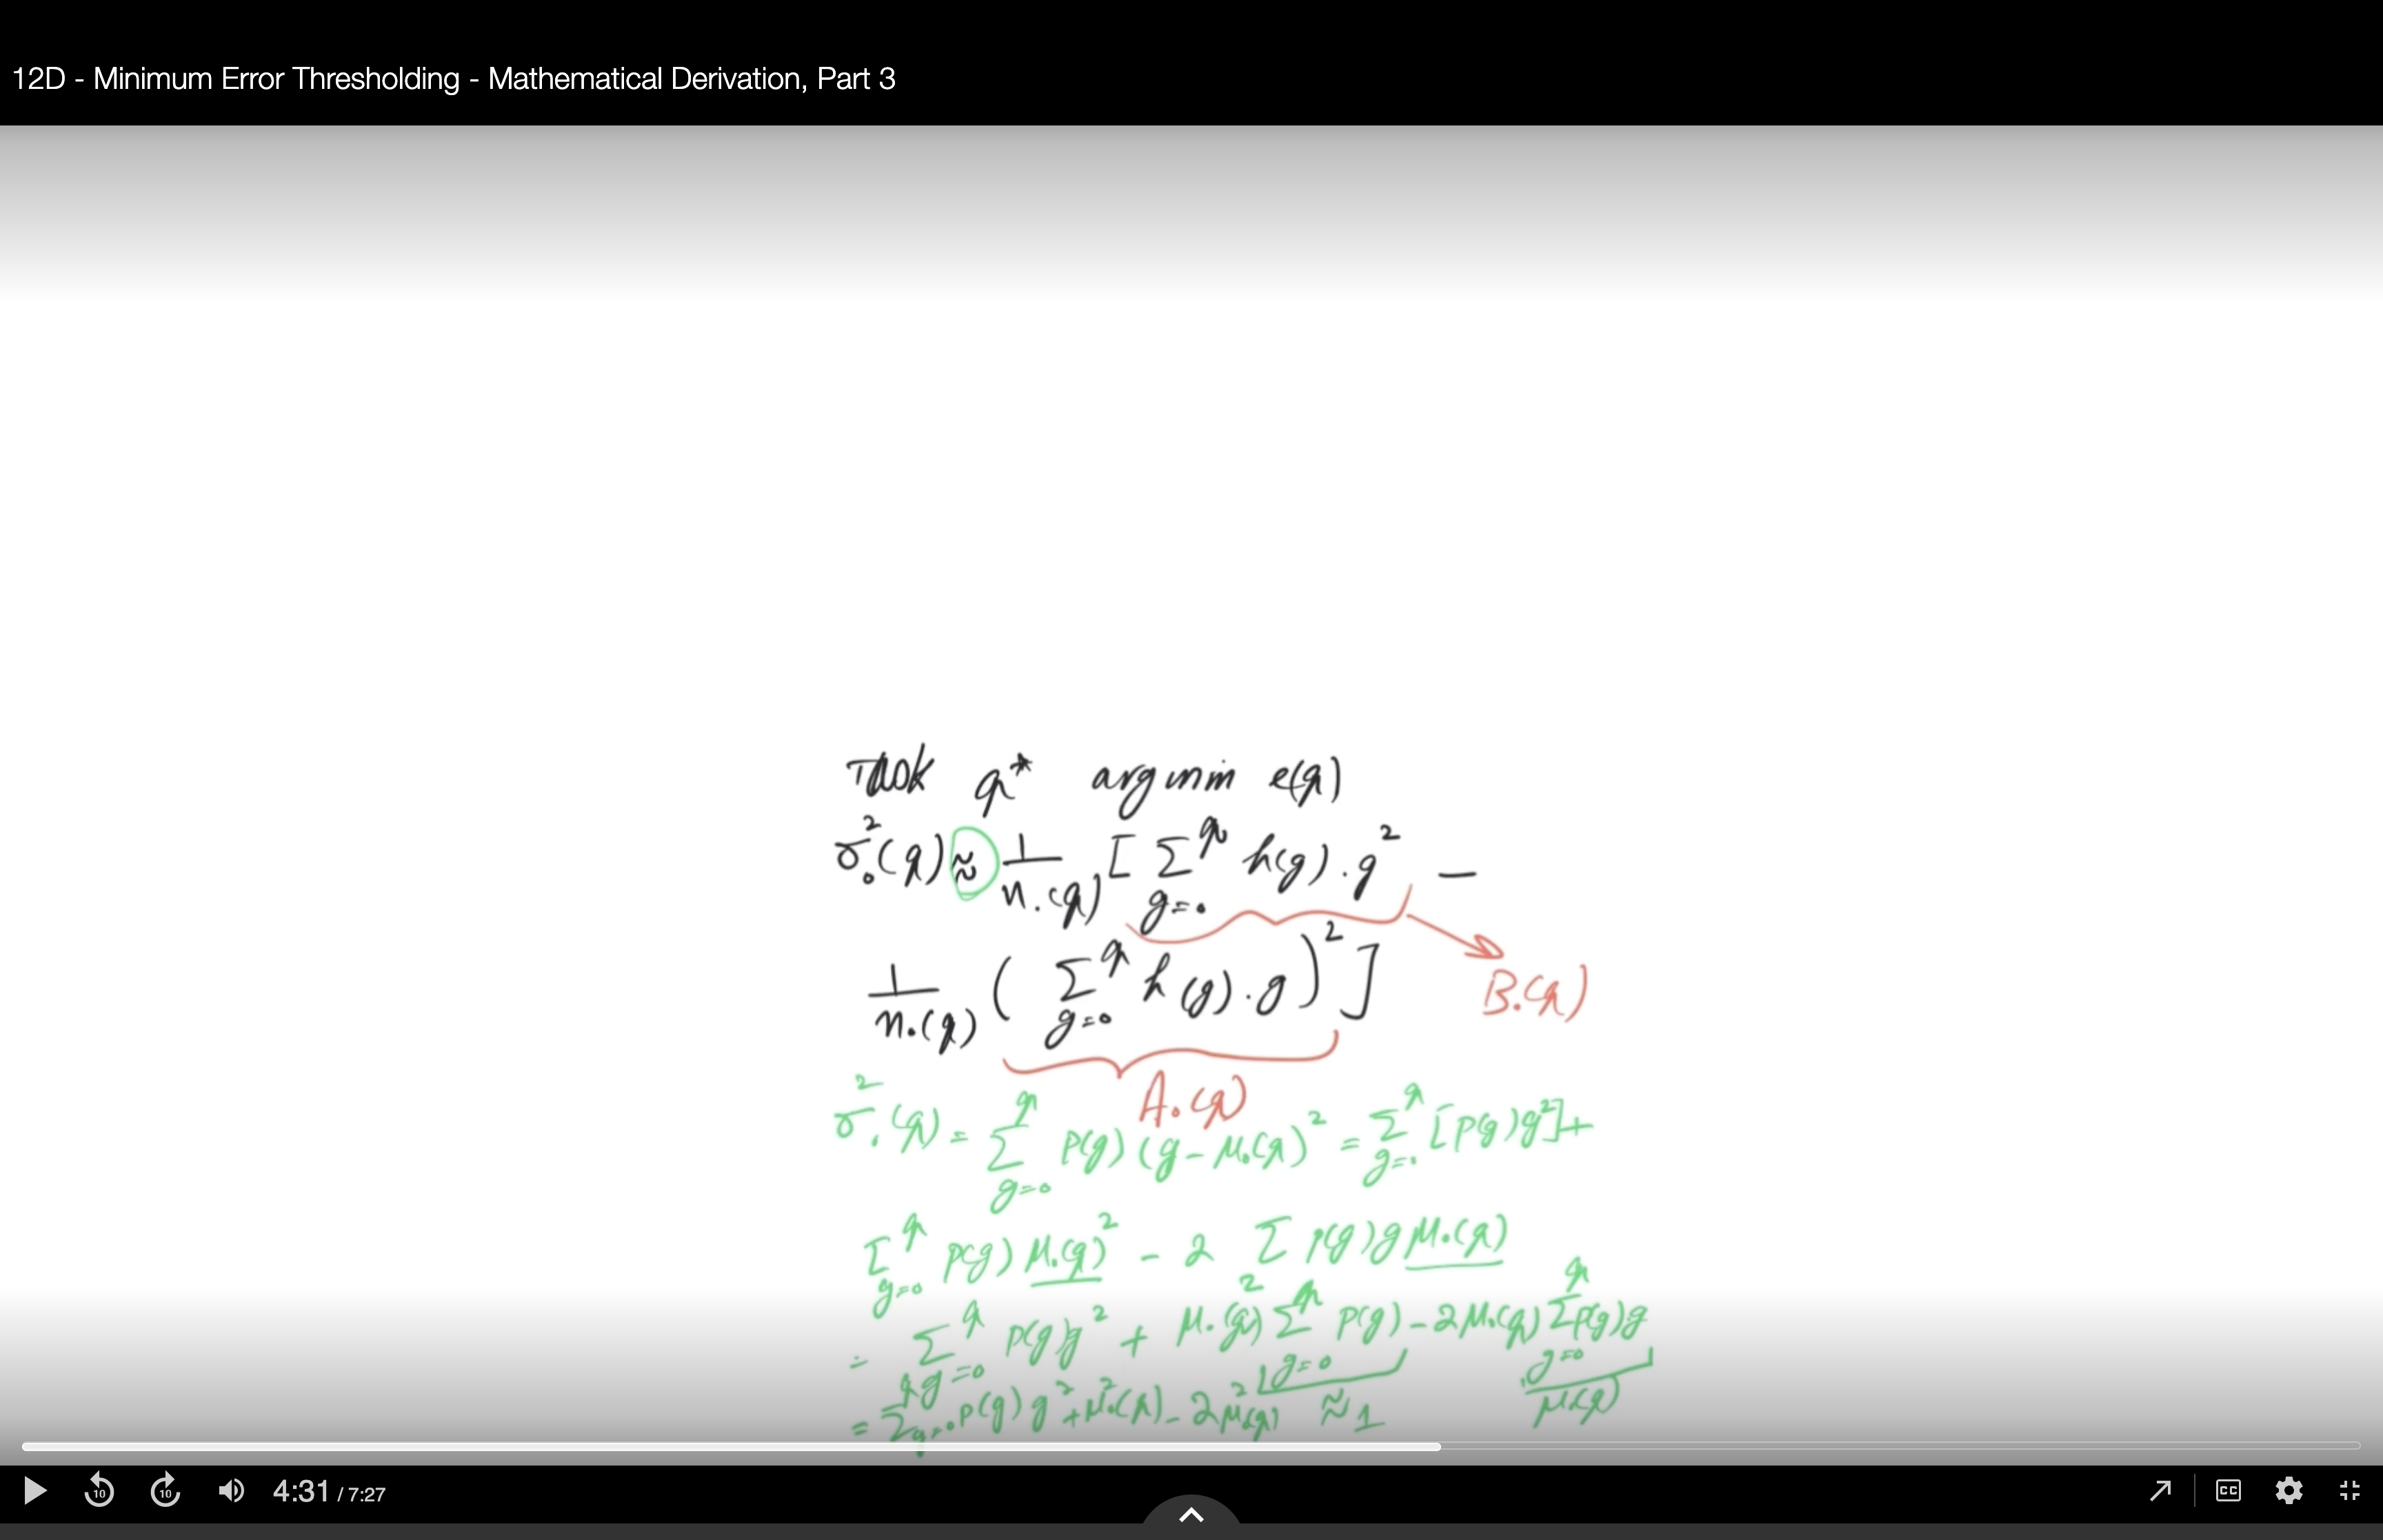 12D - Minimum Error Thresholding - Mathematical Derivation, Part 3
Task q* argmin e(q)
σ₀²(q) ≈ 1/n₀(q) [ Σ_{g=0}^{q} h(g).g² −
1/n₀(q) ( Σ_{g=0}^{q} h(g).g )² ]
B₀(q)
A₀(q)
σ₀²(q) = Σ_{g=0}^{q} P(g) (g − μ₀(q))² = Σ_{g=0}^{q} [P(g)g²] +
Σ_{g=0}^{q} P(g) μ₀(q)² − 2 Σ P(g) g μ₀(q)
= Σ_{g=0}^{q} P(g)g² + μ₀(q)² Σ_{g=0}^{q} P(g) − 2μ₀(q) Σ_{g=0}^{q} P(g)g
= Σ_{g=0}^{q} P(g) g² + μ₀²(q) − 2μ₀²(q) ≈ 1 μ₀(q)
10 10 4:31 / 7:27 CC